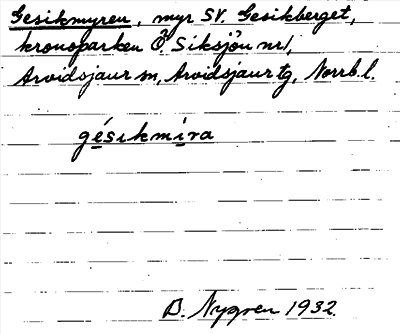 Gesikmyren, myr SV. Gesikberget,
kronoparken Ö. Siksjön nr 1,
Arvidsjaur sn, Arvidsjaur tg, Norrb. l.
gésikmíra
B. Nygren 1932.